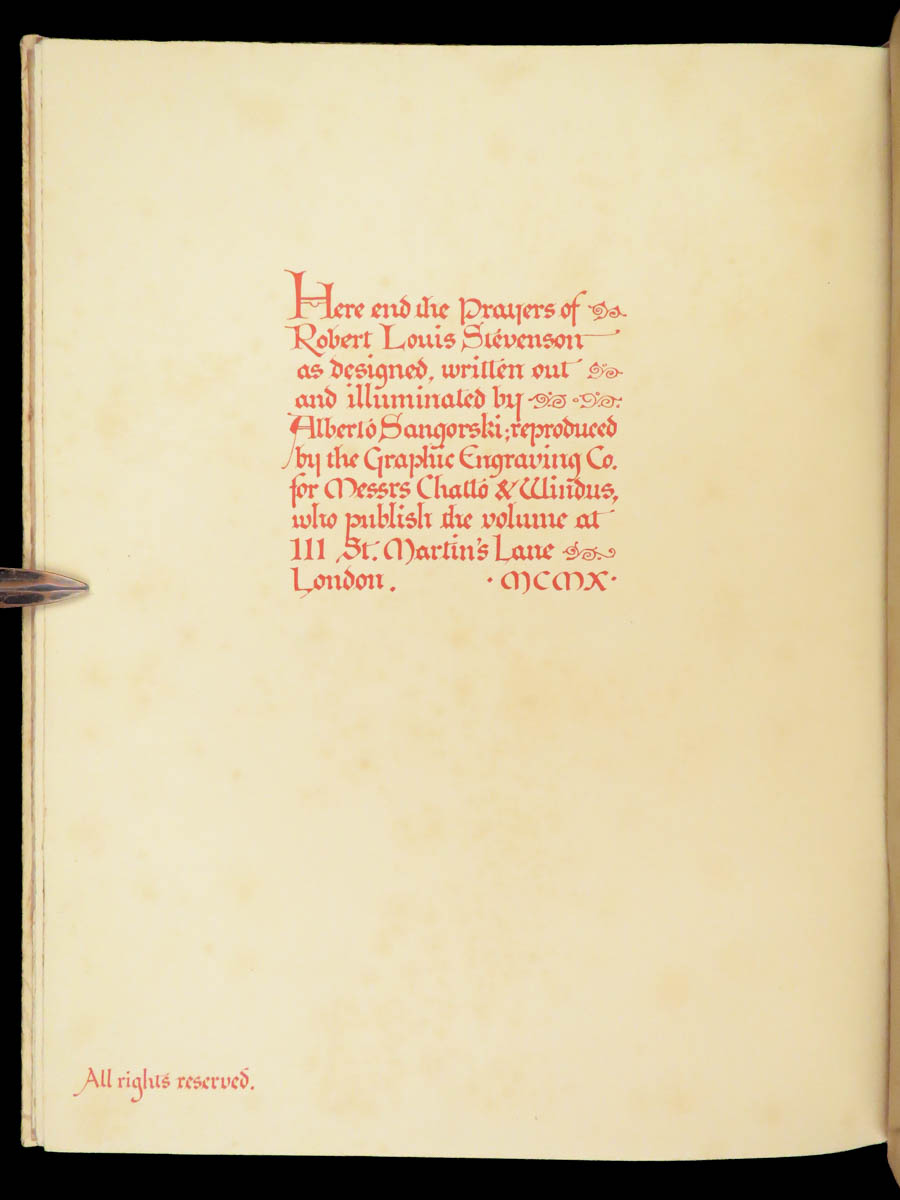 Here end the Prayers of
Robert Louis Stevenson
as designed, written out
and illuminated by
Alberto Sangorski; reproduced
by the Graphic Engraving Co.
for Messrs Chatto & Windus,
who publish the volume at
111 St. Martin's Lane
London. · MCMX ·
All rights reserved.